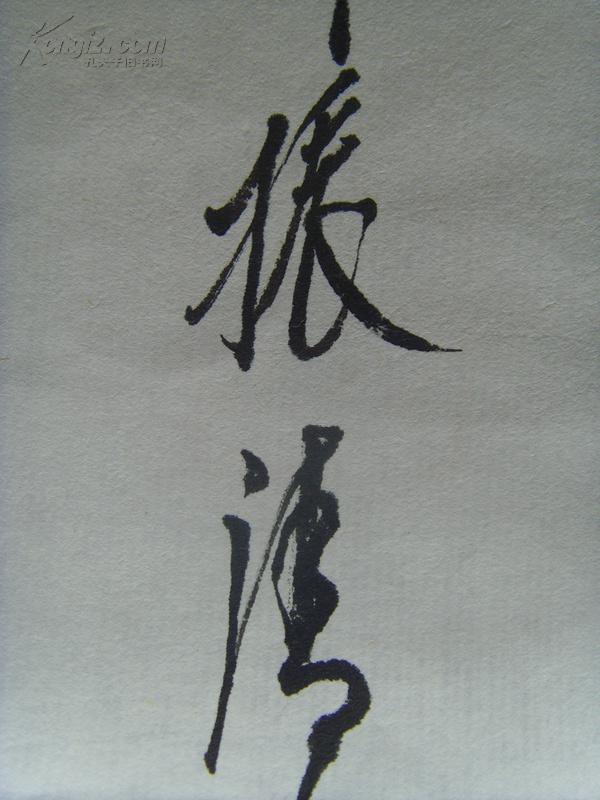 Kongfz.com
孔夫子旧书网
振清